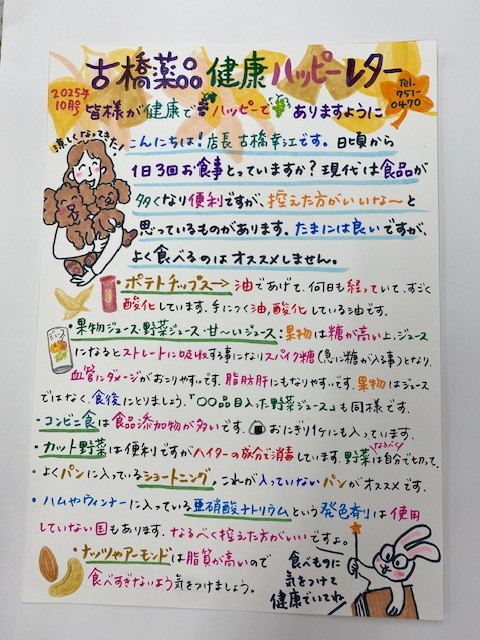 古橋薬品 健康ハッピーレター
2025年
10月号
Tel.
751-
0470
皆様が健康でハッピーでありますように
涼しくなってきた!
こんにちは!店長 古橋幸江です。日頃から
1日3回お食事とっていますか?現代は食品が
多くなり便利ですが、控えた方がいいな〜と
思っているものがあります。たまには良いですが、
よく食べるのはオススメしません。
・ポテトチップス→油であげて、何日も経っていて、すごく
酸化しています。手につく油、酸化している油です。
・果物ジュース・野菜ジュース・甘〜いジュース:果物は糖が高い上、ジュース
になるとストレートに吸収する事になりスパイク糖(急に糖が入る事)となり、
血管にダメージがおこりやすいです。脂肪肝にもなりやすいです。果物はジュース
ではなく、食後にとりましょう。「〇〇品目入った野菜ジュース」も同様です。
・コンビニ食は食品添加物が多いです。おにぎり1ケにも入っています。
・カット野菜は便利ですがハイターの成分で消毒しています。野菜はなるべく自分で切って。
・よくパンに入っているショートニング、これが入っていないパンがオススメです。
・ハムやウィンナーに入っている亜硝酸ナトリウムという発色剤は使用
していない国もあります。なるべく控えた方がいいですよ。
・ナッツやアーモンドは脂質が高いので
食べすぎないよう気をつけましょう。
食べものに
気をつけて
健康でいてね